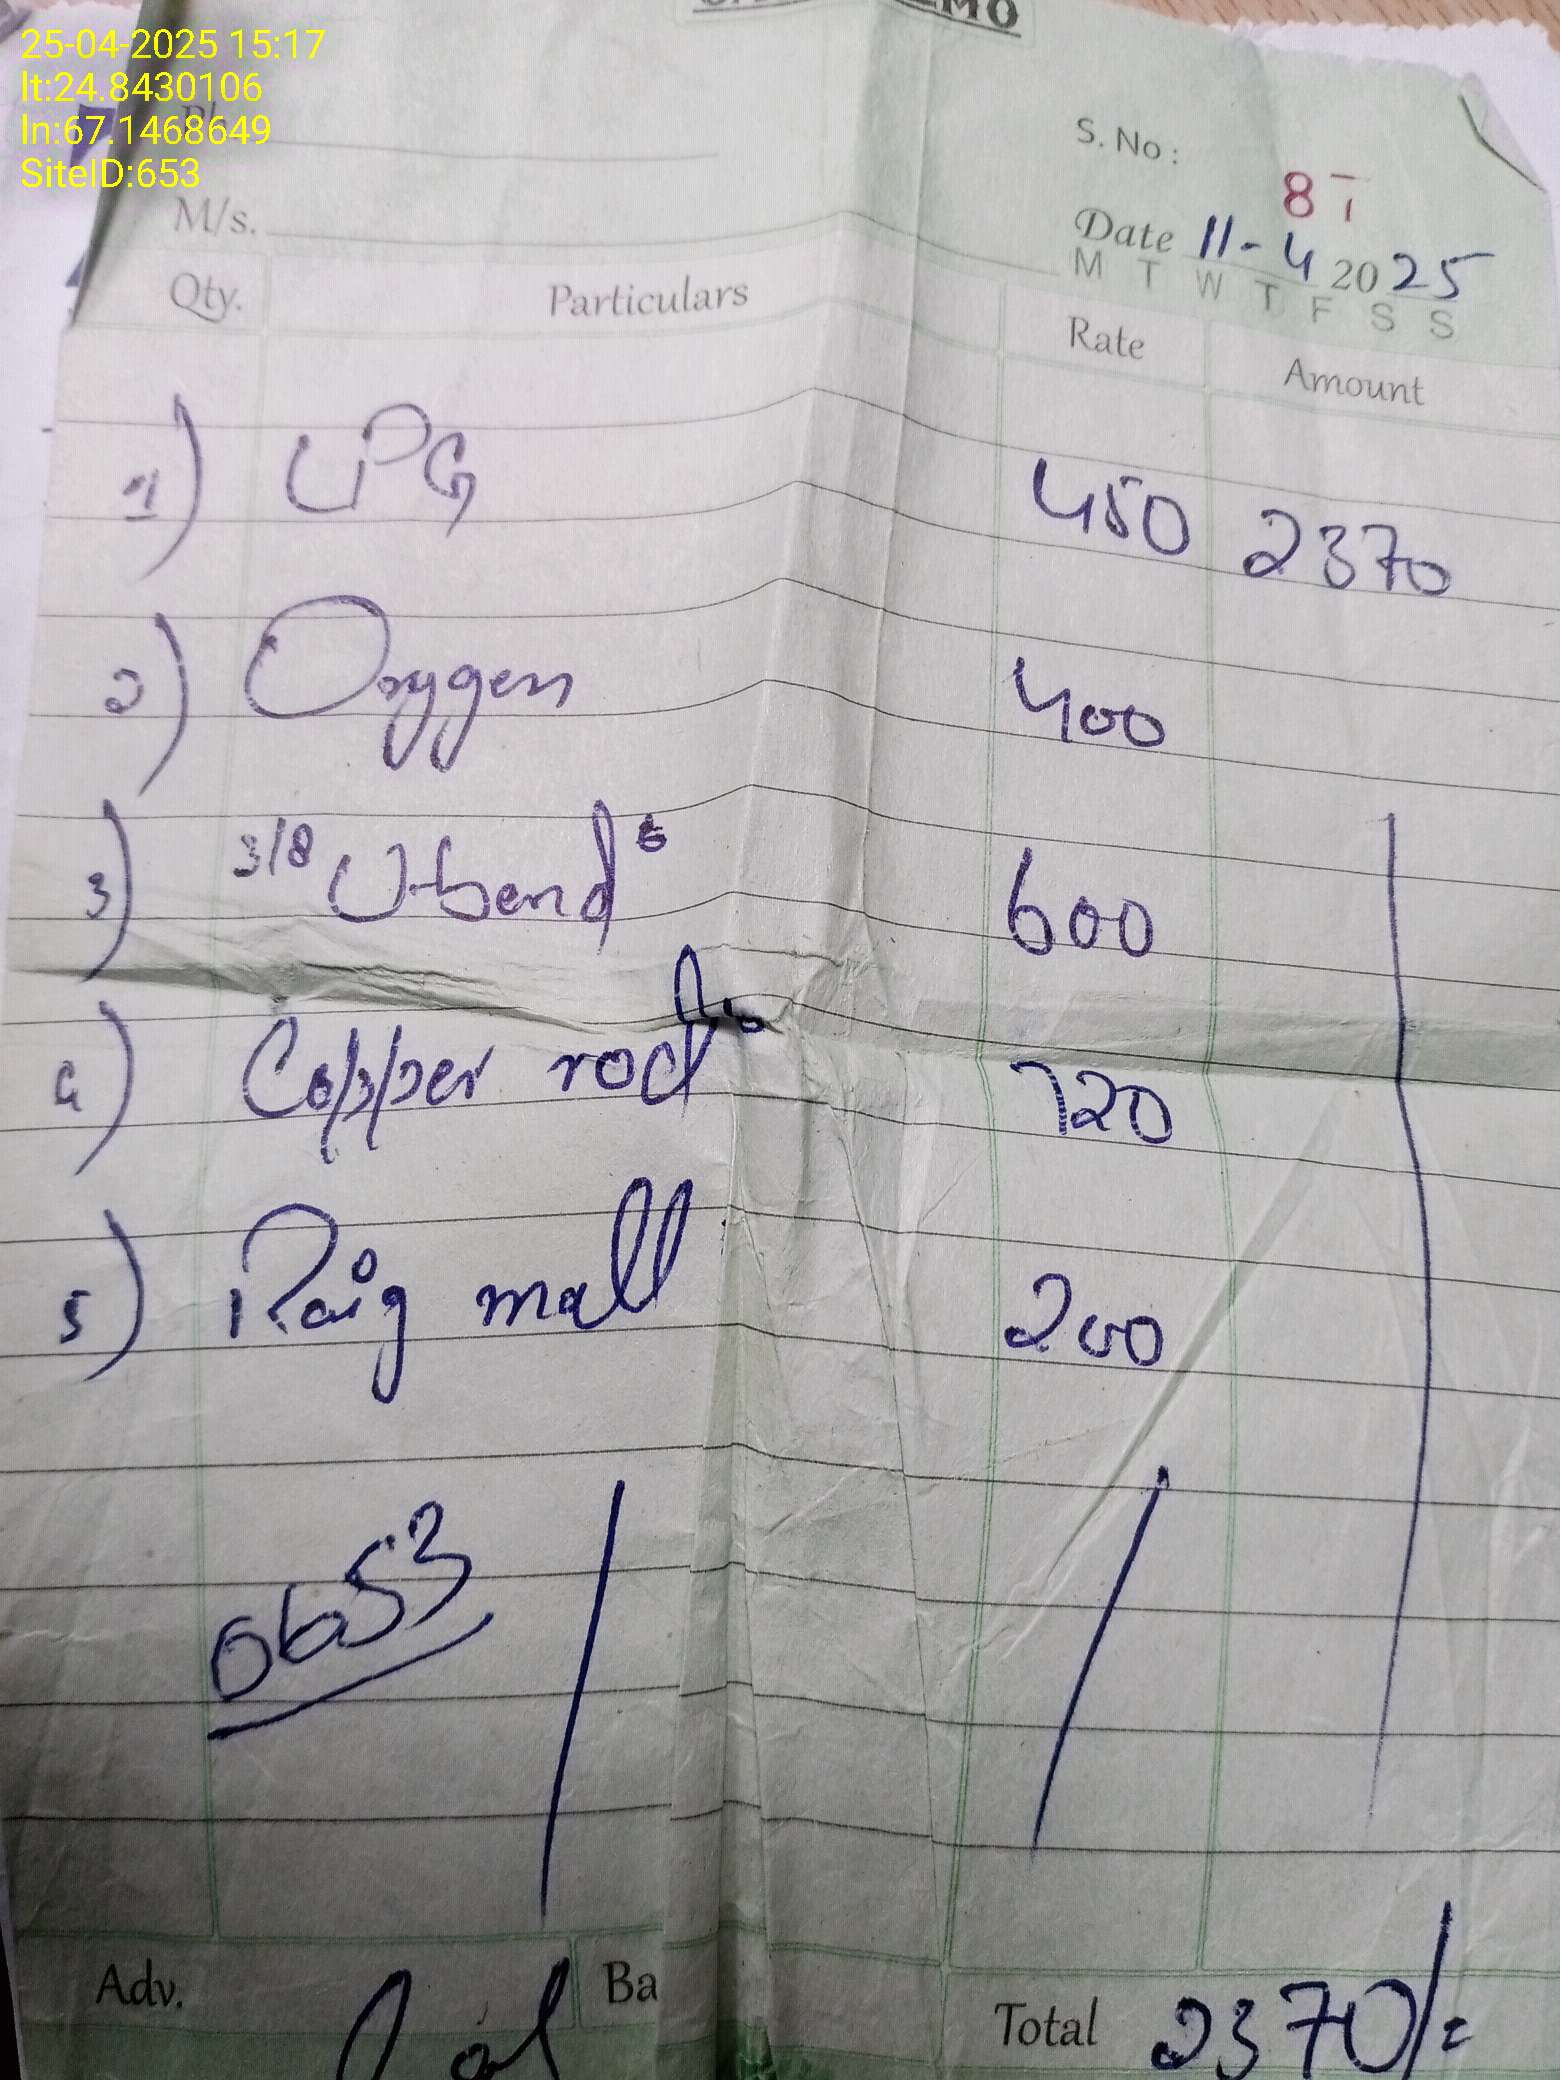 25-04-2025 15:17
lt:24.8430106
ln:67.1468649
SiteID:653
MO
S. No :
87
M/s.
Date 11-4 2025
M T W T F S S
Qty. Particulars Rate Amount
1) LPG 450 2370
2) Oxygen 400
3) 3/8 U-bend 6 600
4) Copper rod 6 720
5) Raig mall 200
0653
Adv. Ba
Total 2370/=